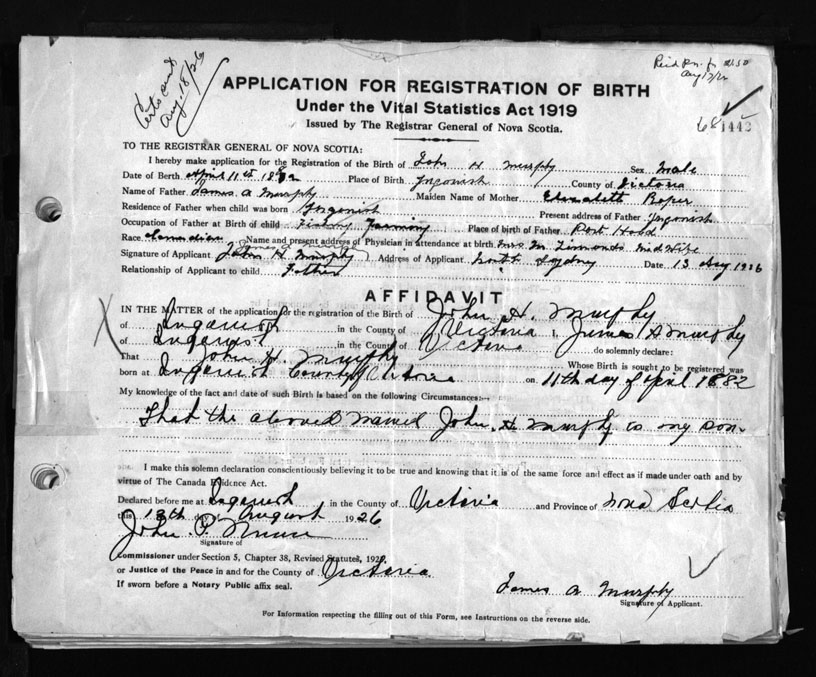 Certs sent
Aug. 18/26
Aug 17/26
APPLICATION FOR REGISTRATION OF BIRTH
Under the Vital Statistics Act 1919
Issued by The Registrar General of Nova Scotia.
68 1442
TO THE REGISTRAR GENERAL OF NOVA SCOTIA:
I hereby make application for the Registration of the Birth of John H Murphy Sex Male
Date of Birth April 11th 1882 Place of Birth Ingonish County of Victoria
Name of Father James A Murphy Maiden Name of Mother Elizabeth Roper
Residence of Father when child was born Ingonish Present address of Father Ingonish
Occupation of Father at Birth of child Fishing Farming Place of birth of Father Port Hood
Race Canadian Name and present address of Physician in attendance at birth Mrs. M. Midwife
Signature of Applicant (John H. Murphy) Address of Applicant North Sydney Date 13 Aug 1926
Relationship of Applicant to child Father
AFFIDAVIT
IN THE MATTER of the application for the registration of the Birth of John H. Murphy
of Ingonish in the County of Victoria I, James A Murphy
of Ingonish in the County of Victoria do solemnly declare:
That John H. Murphy Whose Birth is sought to be registered was
born at Ingonish County of Victoria on 11th day of April 1882
My knowledge of the fact and date of such Birth is based on the following Circumstances:—
That the above named John. H Murphy is my son.
I make this solemn declaration conscientiously believing it to be true and knowing that it is of the same force and effect as if made under oath and by
virtue of The Canada Evidence Act.
Declared before me at Ingonish in the County of Victoria and Province of Nova Scotia
this 13th day of August 1926
John P.
Signature of
Commissioner under Section 5, Chapter 38, Revised Statutes, 1923,
or Justice of the Peace in and for the County of Victoria
If sworn before a Notary Public affix seal.
James A Murphy
Signature of Applicant.
For Information respecting the filling out of this Form, see Instructions on the reverse side.